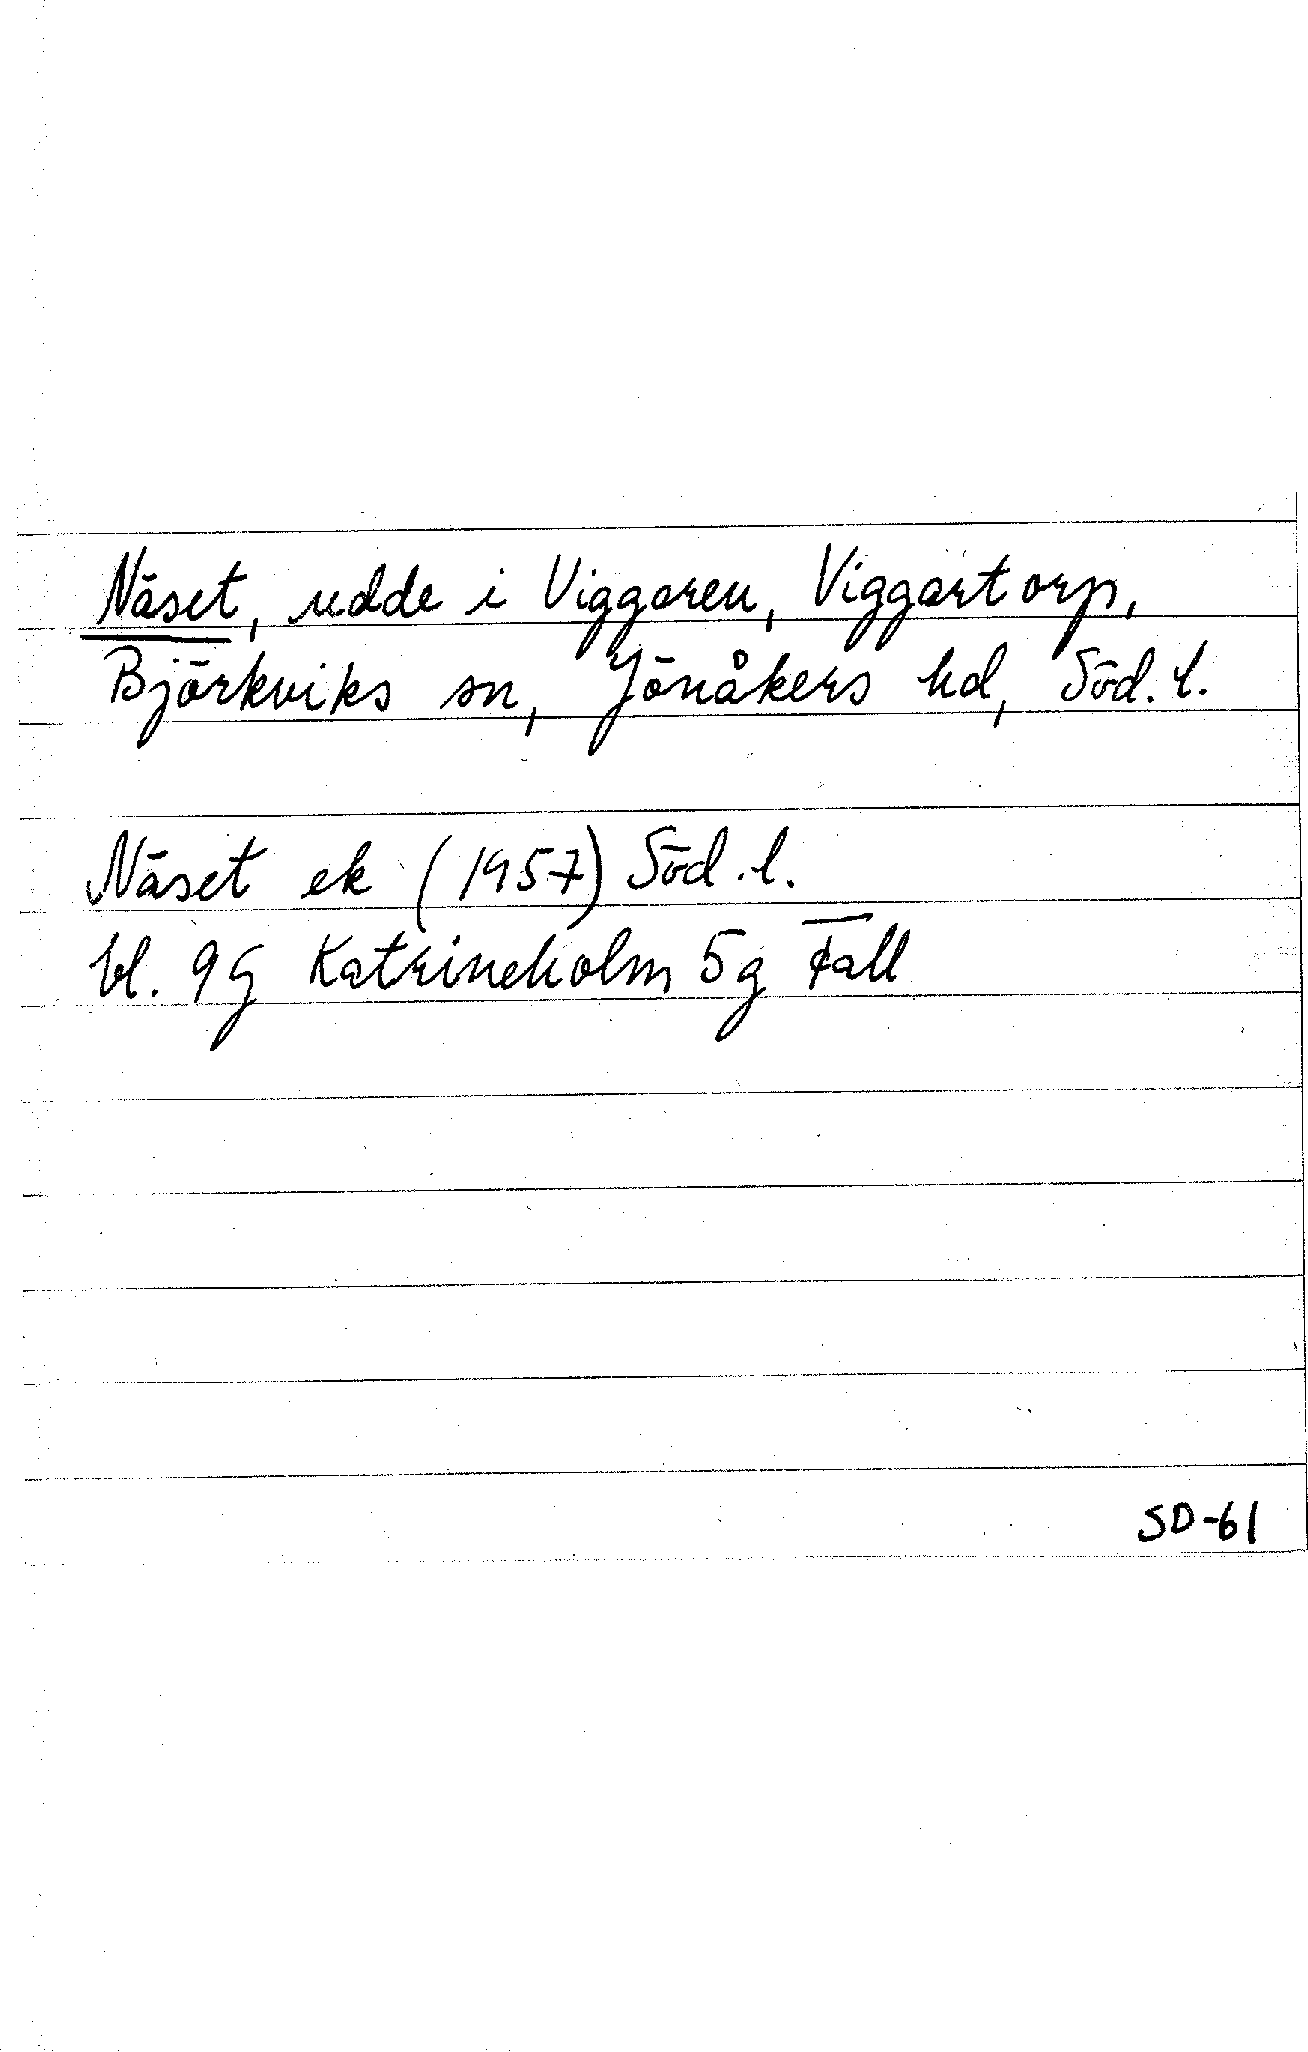 Näset, udde i Viggaren, Viggartorp,
Björkviks sn, Jönåkers hd, Söd. l.
Näset ek (1957) Söd. l.
bl. 9G Katrineholm 5g Fall
SD-61